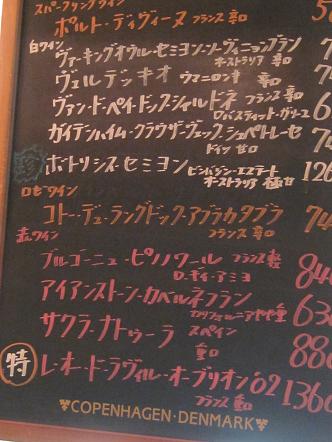 スパークリングワイン
ポルト・ディヴィーヌ フランス 辛口 5
白ワイン
ヴァーキングオウル・セミヨン・ソーヴィニョンブラン 7
オーストラリア 辛口
ヴェルデッキオ ウマニロンキ 辛口 7
ヴァン・ド・ペイ・ドック・シャルドネ フランス 辛口 6
ロバスティット・ガリユ
カイテンハイム・クラウザーヴェック・シュペトレーゼ 7
ドイツ 甘口
珍 ボトリシス・セミヨン ビンバジン・エステート 126
オーストラリア 極甘
ロゼワイン
コトー・デュ・ラングドック・アブラカダブラ 74
フランス 辛口
赤ワイン
ブルゴーニュ・ピノノワール フランス 軽 840
ロッキィ・アミヨ
アイアンストーン・カベルネフラン 630
カリフォルニア やや重
サクラ・ナトゥーラ スペイン 880
重口
特 レ・オー・ド・ラヴィル・オーブリオン '02 1360
フランス 重口
COPENHAGEN・DENMARK